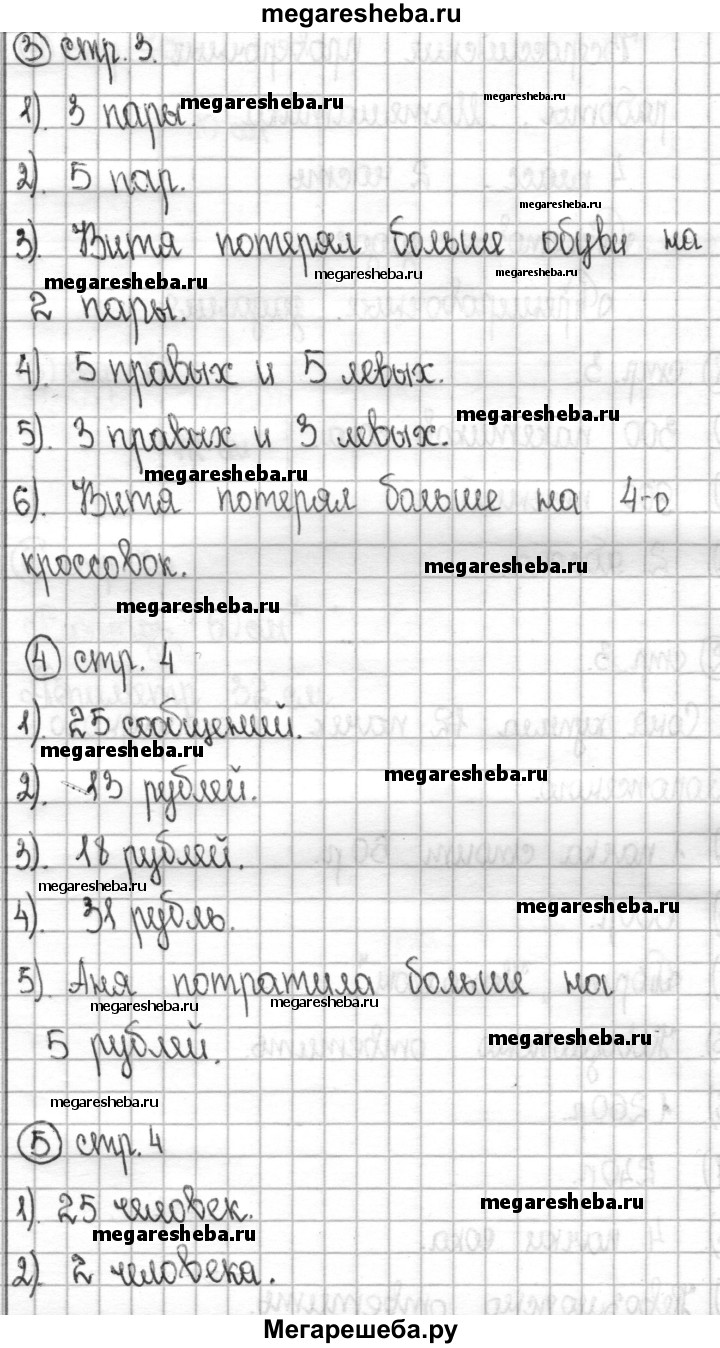 megaresheba.ru
③ стр. 3.
1). 3 пары.
megaresheba.ru
megaresheba.ru
2). 5 пар.
megaresheba.ru
3). Витя потерял больше обуви на
megaresheba.ru
megaresheba.ru
megaresheba.ru
2 пары.
4). 5 правых и 5 левых.
megaresheba.ru
5). 3 правых и 3 левых.
megaresheba.ru
6). Витя потерял больше на 4-о
кроссовок.
megaresheba.ru
megaresheba.ru
④ стр. 4
1). 25 сообщений.
megaresheba.ru
megaresheba.ru
2). 13 рублей.
3). 18 рублей.
megaresheba.ru
megaresheba.ru
4). 31 рубль.
5). Аня потратила больше на
megaresheba.ru
megaresheba.ru
5 рублей.
megaresheba.ru
megaresheba.ru
⑤ стр. 4
1). 25 человек.
megaresheba.ru
megaresheba.ru
2). 2 человека.
Мегарешеба.ру